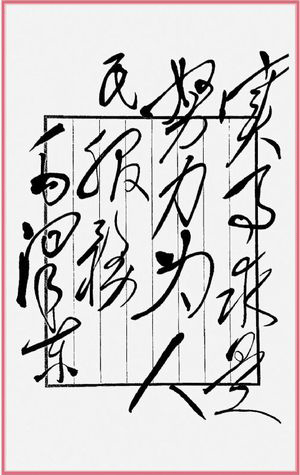 实事求是
努力为人
民服务
毛泽东